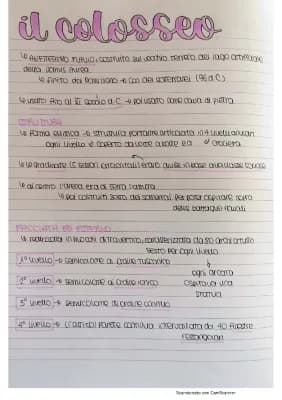 il colosseo
↳ ANFITEATRO FLAVIO, costruito sul vecchio terreno del lago artificiale
della Domus Aurea
↳ finito da Domiziano → con dei sotterranei (96 d.C)
↳ usato fino al VI secolo d.C → poi usato come cava di pietra
STRUTTURA
↳ forma ellittica → struttura portante articolata in 4 livelli anulari
ogni livello è coperto da volte a botte e a crociera
↳ le gradinate (5 settori orizzontali) erano divise in base alla classe sociale
↳ al centro l'arena era di terra battuta
↳ poi costruiti sotto dei sotterranei per poter ospitare sotto
delle battaglie navali
FACCIATA ED ESTERNO
↳ realizzata in blocchi di travertino, caratterizzata da 80 archi a tutto
sesto per ogni livello
1° livello → semicolonne di ordine tuscanico
ogni arcata
2° livello → semicolonne di ordine ionico
ospitava una
statua
3° livello → semicolonne di ordine corinzio
4° livello → (l'attico) parete continua intervallata da 40 finestre
rettangolari
Scansionato con CamScanner